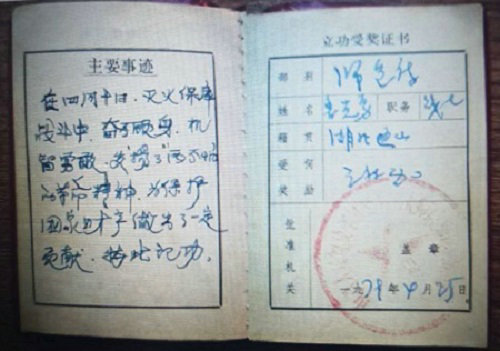 主要事迹
在四月十日，灭火保库
战斗中，奋不顾身，机
智勇敢，发扬了两不怕
的革命精神，为保护
国家财产做出了一定
贡献。特此记功。
立功受奖证书
部别
姓名 职务 战士
籍贯 湖北
受何奖励 三等功
批准机关
盖章
一九 年4月25日